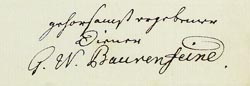 gehorsamst ergebener
Diener
G. W. Baurenfeind.